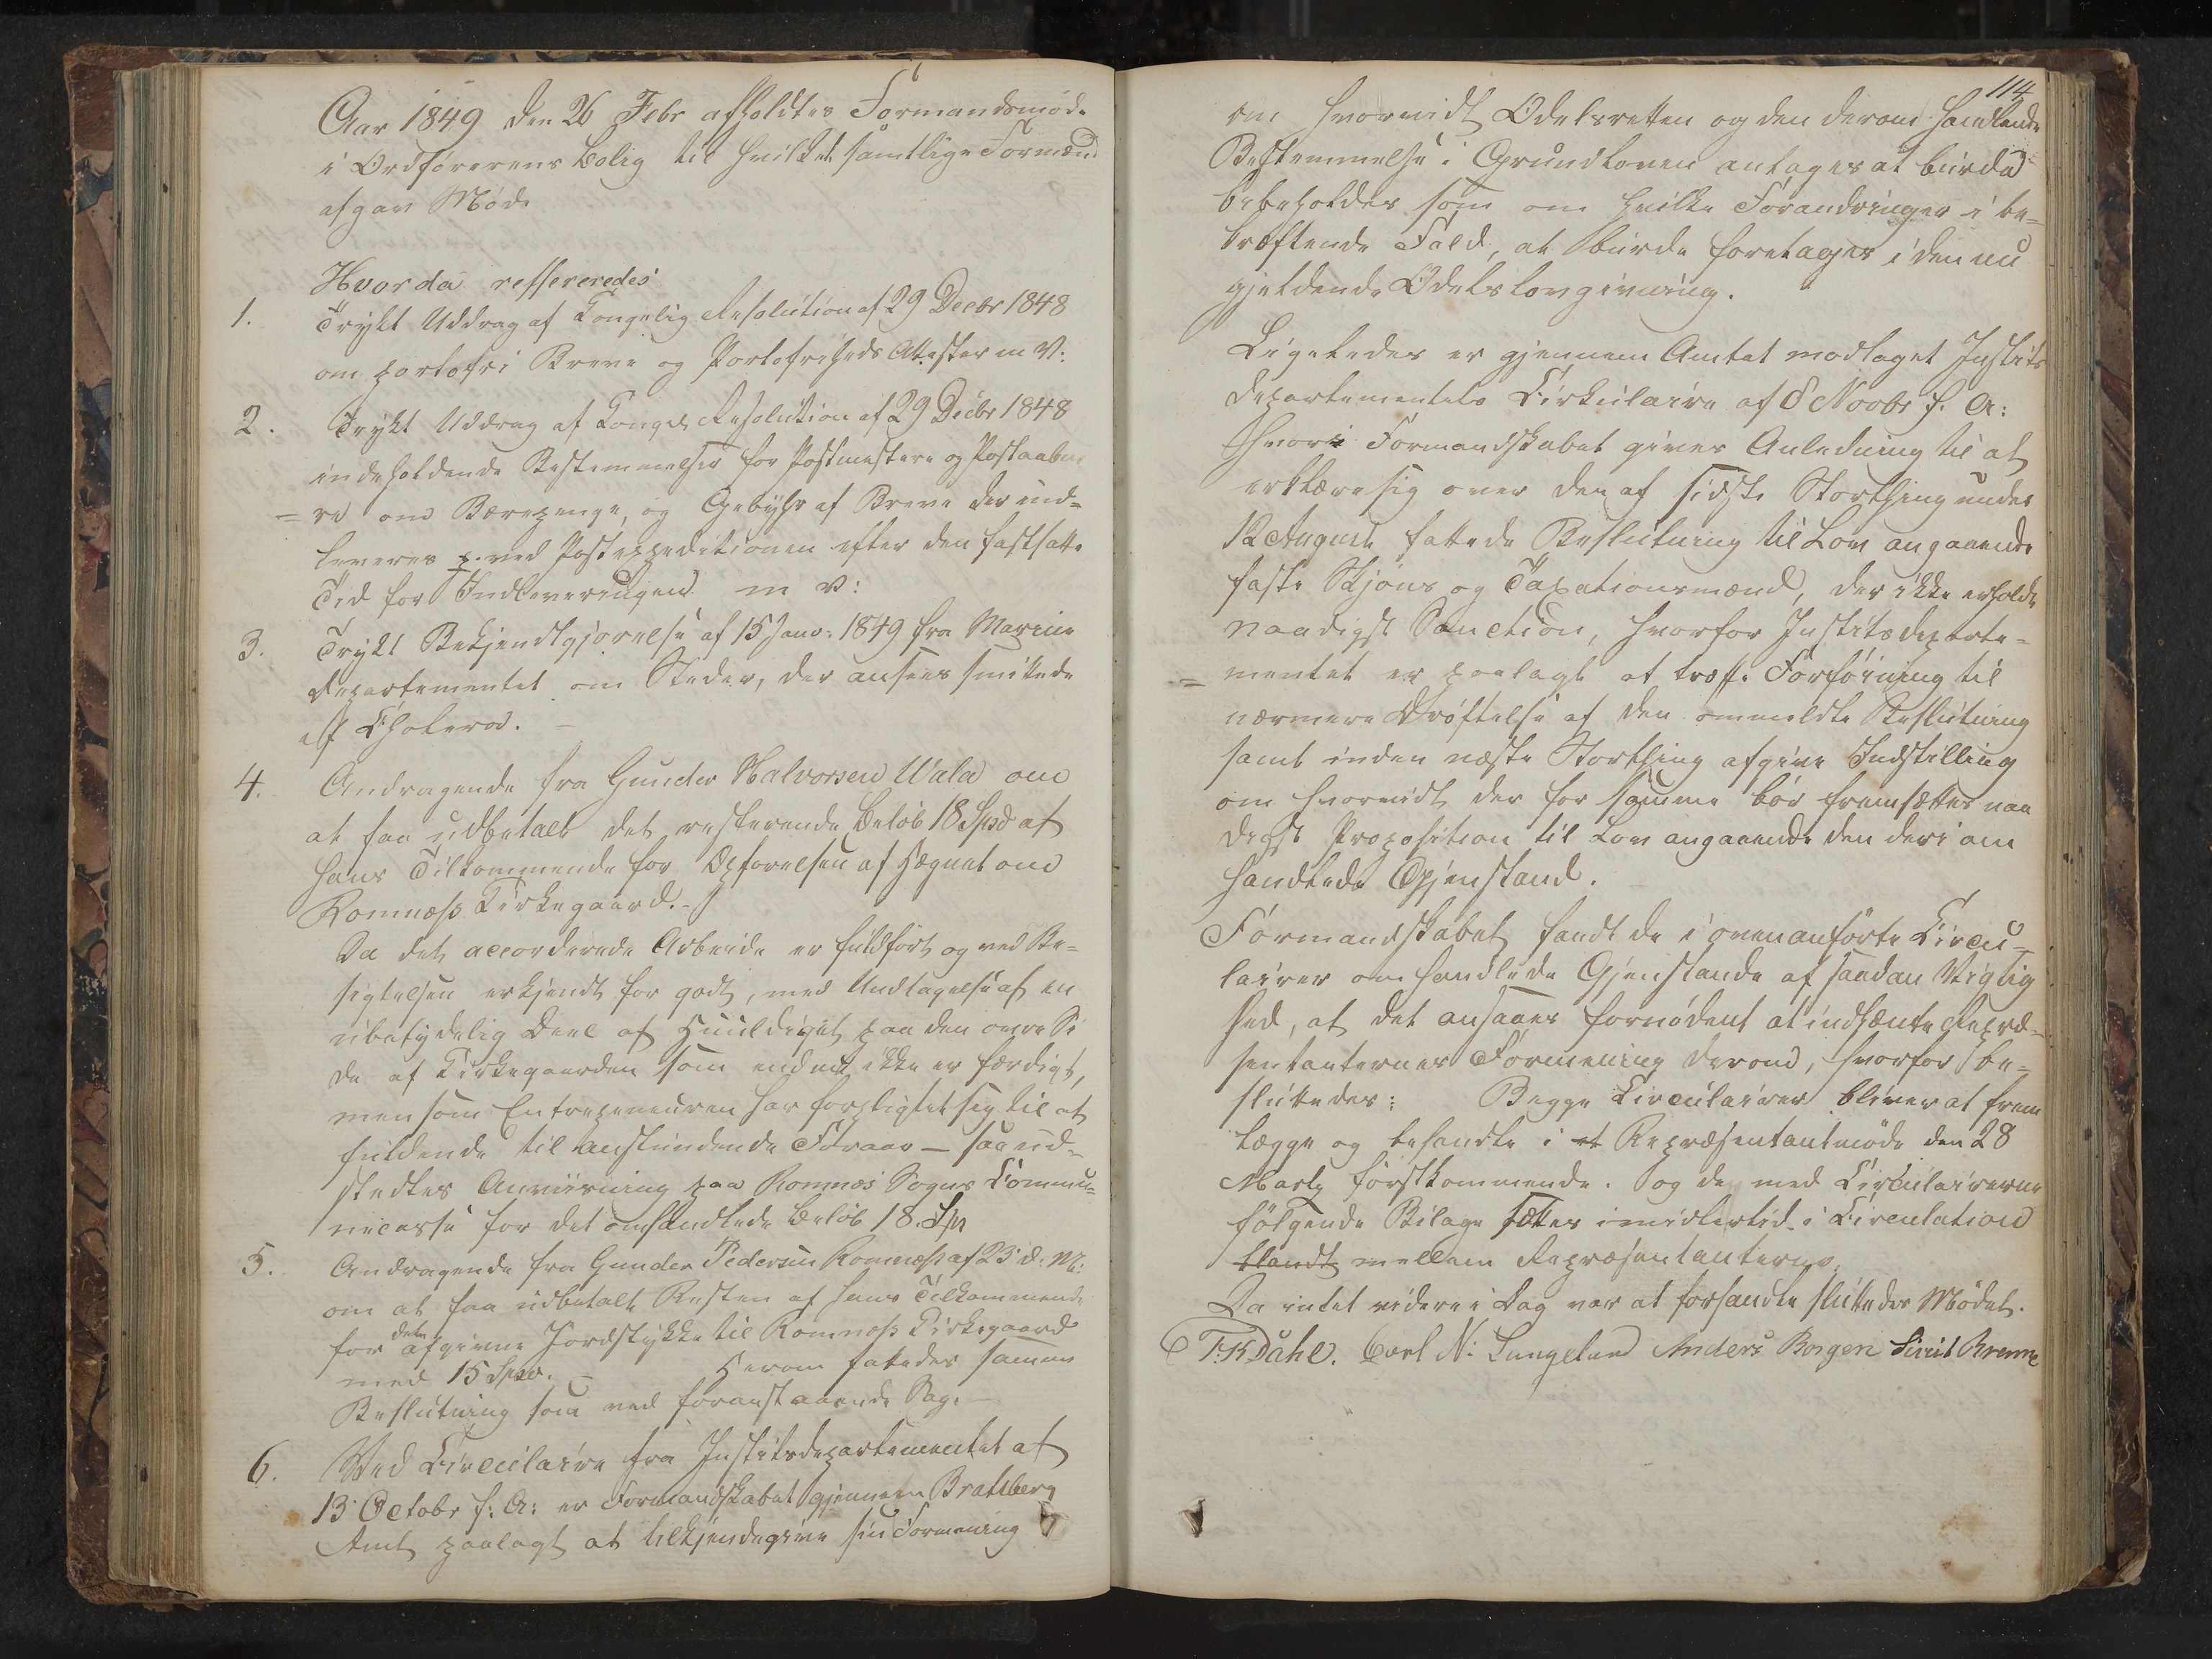 Aar 1849 den 26 Febr afholdtes Formandsmøde
i Ordførerens Bolig til hvilket samtlige Formænd
afgav Møde
Hvorda reffereredes
1. Trykt Uddrag af Kongelig Resolution af 29 Decbr 1848
om portofri Breve og Portofriheds Attester m V:
2. Trykt Uddrag af Kongel Resolution af 29 Decbr 1848
indeholdende Bestemmelser for Postmestere og Postaabne
=re om Bærepenge, og Gebyhr af Breve der ind=
leveres ved Postexpeditionen efter den fastsatte
Tid for Indleveringen m v:
3. Trykt Bekjendtgjørelse af 15 Janv: 1849 fra Marine
Departementet om Steder, der ansees smittede
af Cholera. —
4. Andragende fra Gunder Halvorsen Wala om
at faa udbetalt det resterende Beløb 18 Spd af
hans Tilkommende for Opførelsen af Hegnet om
Romnæss Kirkegaard. -
Da det accorderede Arbeide er fuldført og ved Be=
sigtelsen erkjendt for godt, med Undtagelse af en
ubetydelig Deel af Huuldiget paa den øvre Si
de af Kirkegaarden som endnu ikke er færdigt,
men som Entrepeneuren har forpligtet sig til at
fuldende til anstundende Foraar — saa ud=
stedtes Anviisning paa Romnes Sogns Commu=
necasse for det omhandlede Beløb 18. Spd
5. Andragende fra Gunder Pedersen Romnæss af 23 d: M:
om at faa udbetalt Resten af hans Tilkommende
for dette afgivne Jordstykke til Romnæss Kirkegaard
med 15 Spd. - Herom fattedes samme
Beslutning som ved foranstaaende Sag. —
6. Ved Circulaire fra Justitsdepartementet af
13 Octobr f: A: er Formandskabet gjennem Bratsberg
Amt paalagt at tilkjendegive sin Formening
114
om hvorvidt Odelsretten og den derom handlende
Bestemmelse i Grundloven antages at burde
bibeholdes som om hvilke Forandringer i be=
kræftende Fald, at burde foretages i den nu
gjeldende Odelslovgivning.
Ligeledes er gjennem Amtet modtaget Justits
Departementets Cirkulaire af 8 Novbr f. A:
hvori Formandskabet gives Anledning til at
erklære sig over den af sidste Storthing under
12 August fattede Beslutning til Lov angaaende
faste Skjøns og Taxationsmænd, der ikke erholdt
naadigst Sanction, hvorfor Justitsdeparte=
=mentet er paalagt at træffe Forføining til
nærmere Drøftelse af den ommeldte Beslutning
samt inden næste Storthing afgive Indstilling
om hvorvidt der for samme bør fremsættes naa
digst Proposition til Lov angaaende den deri om
handlede Gjenstand.
Formandskabet fandt de i ovenanførte Circu=
lairer omhandlede Gjenstande af saadan Vigtig
hed, at det ansaaes fornødent at indhænte Repræ=
sentanternes Formening derom, hvorfor be=
sluttedes: Begge Circulairer bliver at frem
lægge og behandle i et Repræsentantmøde den 28
Marts førstkommende. og de med Circulairerne
følgende Bilage sættes imidlertid i Circulation
blandt mellem Repræsentanterne.
Da intet videre i Dag var at forhandle sluttedes Mødet.
T. K Dahl. Carl N: Lungeland Anders Borgen Sivert Brenne